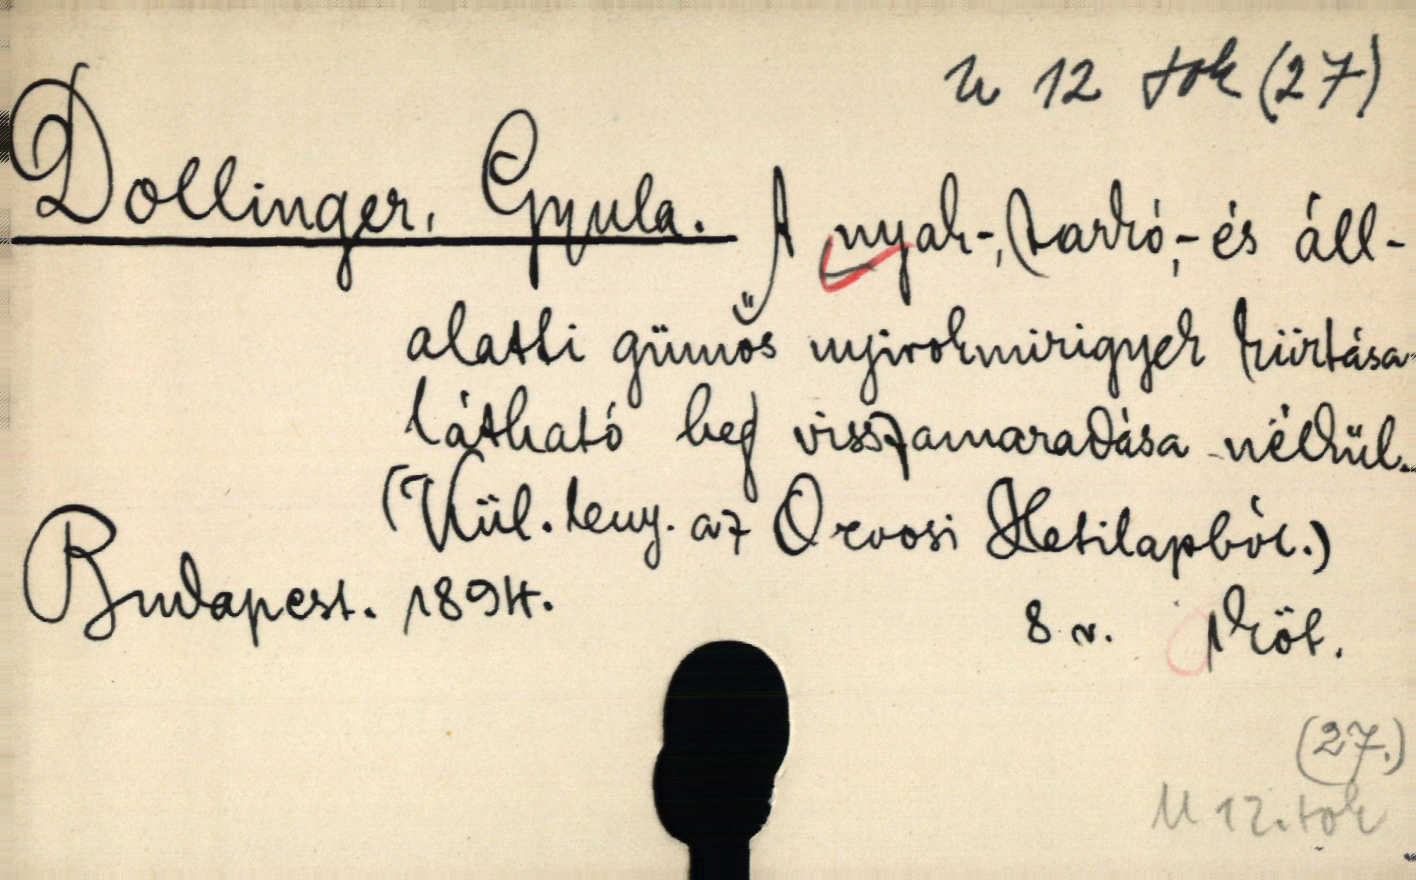 U 12 tok (27)
Dollinger, Gyula. A nyak-, tarkó,- és áll-
alatti gümős nyirokmirigyek kiirtása
látható heg visszamaradása nélkül.
(Kül. leny. az Orvosi Hetilapból.)
Budapest. 1894.
8 r. 1 köt.
(27.)
U 12. tok